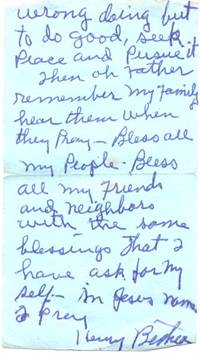 wrong doing but
to do good, seek
Peace and Pursue it
Then oh Father
remember my Family
hear them when
they Pray - Bless all
my People - Bless
all my Friends
and neighbors
with the same
blessings that I
have ask for my
self - in Jesus name
I Pray
Henry